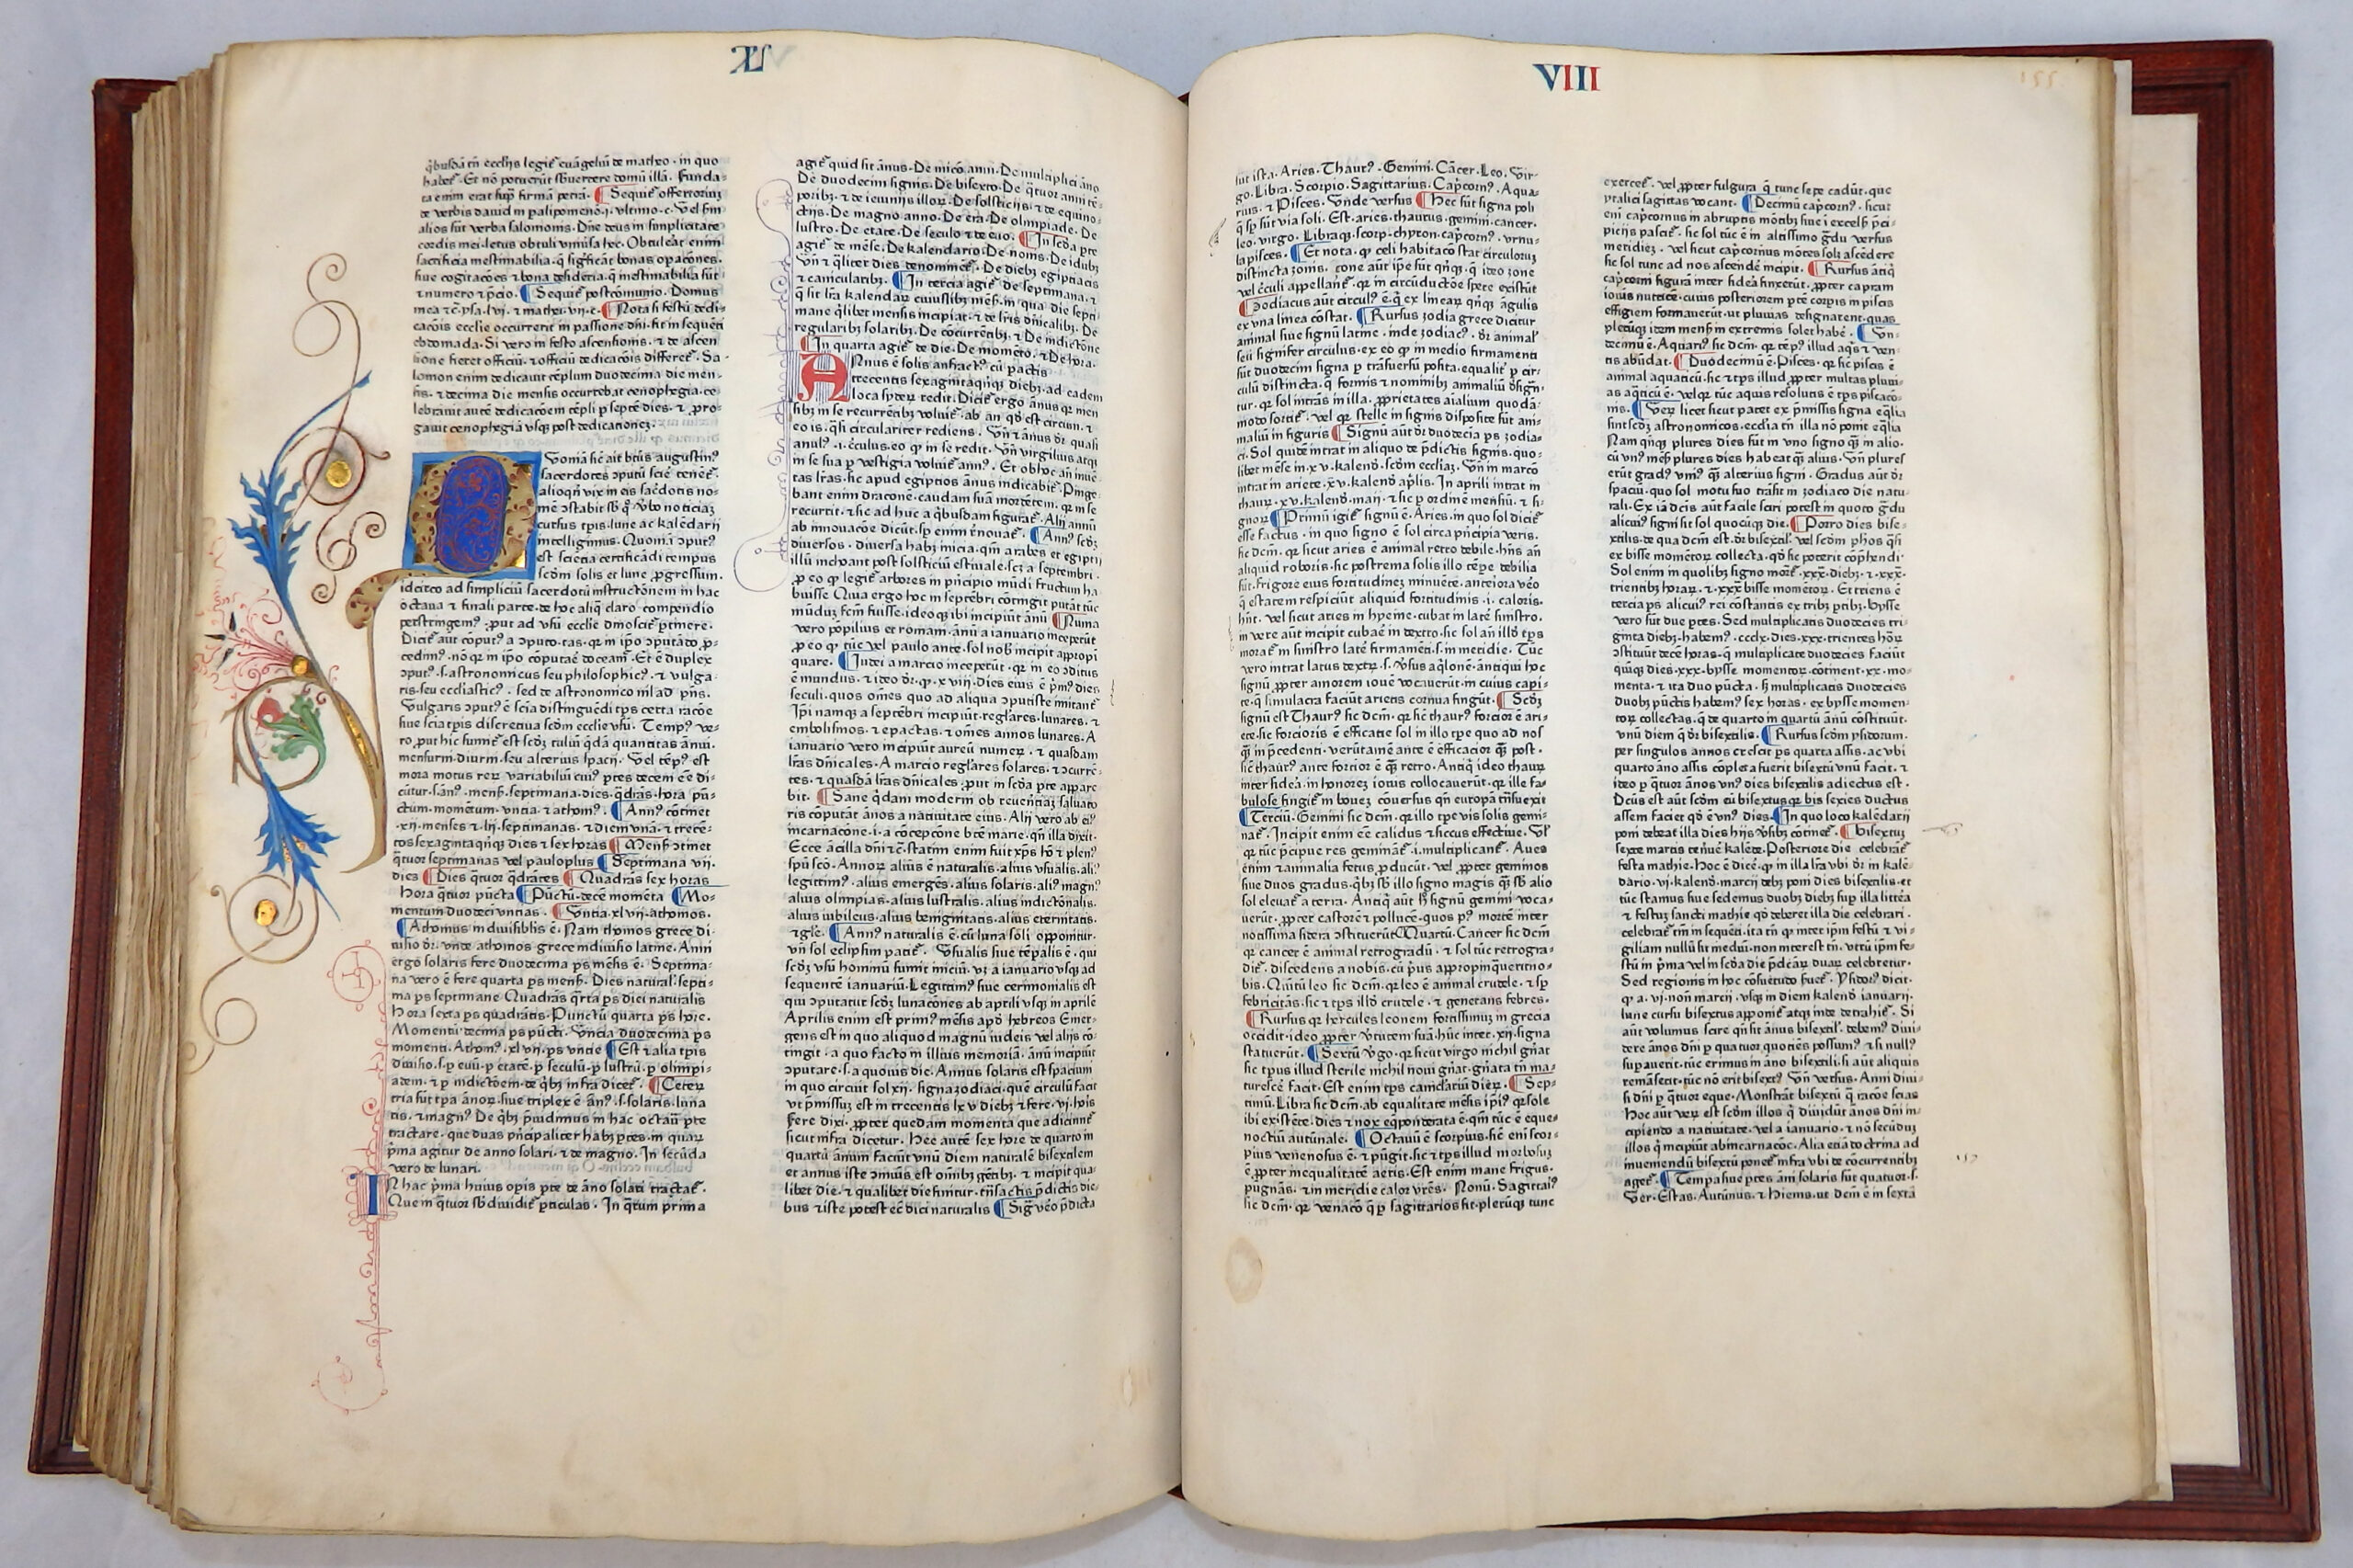 LX
q̓busdā tn̄ eccl̓ijs legit᷑ euāgeliū de matheo · in quo
habet᷑ · Et nō potuerūt sbuertere domū illā · Funda-
ta enim erat sup̱ firmā petrā · Sequit᷑ offertoriū
de verbis dauid in palipomenō · i · vltimo · c · Vel sm̄
alios sūt verba salomonis · Dn̄e deus in simplicitate
cordis mei · letus obtuli vniũsa hec · Obtulerāt enim
sacrificia inestimabilia · q̄ significāt bonas opacōnes ·
siue cogitacōes ⁊ bona desideria · q̄ inestimabilia sūt
⁊ numero ⁊ p̓cio · Sequit᷑ postcōmunio · Domus
mea ⁊c̄ · ysa · lvj · ⁊ mathei · vij · c · Nota si festū dedi-
cacōis ecclie occurrerit in passione dn̄i · fit in sequēti
ebdomada · Si vero in festo ascensionis · ⁊ de ascen
sione fieret officiū · ⁊ officiū dedicacōis differet᷑ · Sa-
lomon enim dedicauit tēplum duodecima die men-
sis · ⁊ decima die mensis occurrebat cenophegia · ce-
lebrauit autē dedicacōem tēpli p̱ septē dies · ⁊ pro-
gauit cenophegiā vsq̣ post dedicationeʒ ·
Quoniā sic ait btūs augustin⁹
sacerdotes ꝯputū scire tenēt᷑ ·
alioq̓n vix in eis sac̓dotis no-
mē ꝯstabit · sʒ q̓ v̓bo noticiaʒ
cursus tp̄is · lune ac kalēdarij
intelligimus · Quoniā ꝯput⁹
est sciētia certificādi tempus
scd̄m solis et lune ꝓgressum ·
idcirco ad simpliciū sacerdotū instructōnem in hac
octaua ⁊ finali parte · de hoc aliq̓ claro compendio
perstringem⁹ · ꝓut ad vsū ecclie dinoscit᷑ ptinere ·
Dicit᷑ aūt cōput⁹ a ꝯputo · tas · q̓r in ip̄o ꝯputādo ꝓ-
cedim⁹ · nō q̓r in ip̄o cōputare doceam⁹ · Et ē duplex
ꝯput⁹ · s · astronomicus seu philosophic⁹ · ⁊ vulga-
ris · seu eccl̓iastic⁹ · sed de astronomico nl̓ ad pn̄s ·
Vulgaris ꝯput⁹ ē scia distinguēdi tp̄s certa racōe
siue scia tp̄is discretiua scd̄m ecclie vsū · Temp⁹ ve-
ro ꝓut hic sumit᷑ est scd̄ʒ tuliū q̄dā quantitas ānui ·
mensurni · diurni · seu alterius spacij · Vel tēp⁹ est
mora motus reꝝ variabiliū cui⁹ ptes decem eē di-
cūtur · s · ān⁹ · menß · septimana · dies · q̄drās · hora · pū-
ctum · momētum · vncia · ⁊ athom⁹ · Ann⁹ cōtinet
· xij · menses ⁊ lij · septimanas · ⁊ diem vnā · ⁊ trecē-
tos sexagintaq̓nq̣ dies ⁊ sex horas Menß ꝯtinet
q̄tuor septimanas vel pauloplus Septimana vij ·
dies Dies q̄tuor q̄drātes Quadrās sex horas
Hora q̄tuor pūcta Pūctū · decē momēta Mo-
mentum duodeci vntias · Vntia · xlvij · athomos ·
Athomus indiuisibilis ē · Nam thomos grece di-
uisio dr̄ · vnde athomos grece indiuisio latine · Anni
ergo solaris fere duodecima ps mēsis ē · Septima-
na vero ē fere quarta ps menß · Dies natural̓ · septi-
ma ps septimane Quadrās q̓rta ps diei naturalis
Hora sexta ps quadrātis · Punctū quarta ps hore ·
Momentū decima ps pūcti · Vncia duodecima ps
momenti · Athom⁹ · xlvij · ps vntie Est ⁊ alia tp̄is
diuisio · s · p̱ euū · p̱ etatē · p̱ seculū · p̱ lustrū · p̱ olimpi-
adem · ⁊ p̱ indictōem · de q̓bʒ infra dicet᷑ · Ceteꝝ
tria sūt tp̄a ānoꝝ · siue triplex ē ān⁹ · s · solaris · luna
ris · ⁊ magn⁹ De q̓bʒ p̓uidimus in hac octaū pte
tractare · que duas p̓ncipaliter habʒ ptes · in quaꝝ
p̓ma agitur de anno solari · ⁊ de magno · In secūda
vero de lunari ·
In hac p̓ma huius opis pte de āno solari tractat᷑ ·
Quem q̄tuor sb̄diuidit᷑ pticulas · In q̄rum prima
agit᷑ quid sit ānus · De inicō anni · De multiplici āno
De duodecim signis · De bisexto · De q̄tuor anni tē-
poribʒ · ⁊ de ieiunijs illoꝝ · De solsticijs · ⁊ de equino-
ctijs · De magno anno · De era · De olimpiade · De
lustro · De etate · De seculo ⁊ de euo · In scd̄a pte
agit᷑ de mēse · De kalendario · De nonis · De idubʒ
Vn̄ ⁊ q̓liter dies denominēt᷑ · De diebʒ egiptiacis
⁊ canicularibʒ · In tercia agit᷑ de septimana · ⁊
q̄ sit lr̄a kalendaꝝ cuiuslibʒ menß · in qua die septi
mane q̓libet mensis incipiat · ⁊ de lr̄is dn̄icalibʒ · De
regularibʒ solaribʒ · De cōcurrētibʒ · ⁊ De indictōne
In quarta agit᷑ de die · De momēto · ⁊ De hora ·
Annus ē solis anfract⁹ cū pactis
trecentis sexagintaq̓nq̣ diebʒ · ad eadem
loca sydeꝝ redit · Dicit᷑ ergo ānus q̓r men
sibʒ in se recurrētibʒ voluit᷑ · ab an qd̓ est circum · ⁊
eo is · q̓si circulariter rediens · Vn̄ ⁊ ānus dr̄ quasi
anul⁹ · i · c̓culus · eo q̓ in se redit · Vn̄ virgilius atq̣
in se sua p̱ vestigia voluit᷑ ann⁹ · Et ob hoc añ inuē
tas lr̄as · sic apud egiptios ānus indicabit᷑ · Pinge
bant enim draconē · caudam suā mordētem · q̓r in se
recurrit · ⁊ sic ad huc a q̓busdam figurat᷑ · Alij annū
ab innouacōe dicūt · sp̱ enim r̓nouat᷑ · Ann⁹ scd̄ʒ
diuersos · diuersa habʒ inicia · qm̄ arabes et egiptij
illū inchoant post solsticiū estiuale · scʒ a septembri ·
ꝓ eo q̓ legit᷑ arbores in p̓ncipio mūdi fructum ha
buisse · Quia ergo hoc in septēbri cōtingit putāt tūc
mūduʒ fcm̄ fuisse · ideoq̣ ibi incipiūt ānū Numa
vero pōpilius et romani · ānū a ianuario inceperūt
ꝓ eo q̓ tūc vel paulo ante · sol nob̓ incipit appropi
quare · Iudei a marcio inceperūt · q̓r in eo ꝯditus
ē mundus · ⁊ ideo dr̄ · q̓ · xviij · dies eius ē p̓m⁹ dies
seculi · quos om̄es quo ad aliqua ꝯputiste imitant᷑
Ip̄i namq̣ a septēbri incipiūt · reglares · lunares · ⁊
embolismos · ⁊ epactas · ⁊ om̄es annos lunares · A
ianuario vero incipiūt aureū numeꝝ · ⁊ quasdam
lr̄as dn̄icales · A marcio reglares solares · ⁊ ꝯcurrē-
tes · ⁊ quasdā lr̄as dn̄icales · ꝓut in scd̄a pte appare
bit · Sane q̓dam moderni ob reuerētiaʒ saluato
ris cōputāt ānos a natiuitate eius · Alij vero ab ei⁹
incarnacōne · i · a cōcepcōne btē marie · qn̄ illa dixit ·
Ecce ācilla dn̄i ⁊c̄ · statim enim fuit xp̄s hō ⁊ plen⁹
spū scō · Annoꝝ alius ē naturalis · alius vsualis · ali⁹
legittim⁹ · alius emergēs · alius solaris · ali⁹ magn⁹
alius olimpias · alius lustralis · alius indictōnalis ·
alius iubileus · alius benignitatis · alius eternitatis ·
⁊ c̓t̄e · Ann⁹ naturalis ē · cū luna soli opponitur ·
vn̄ sol eclipsim patit᷑ · Vsualis siue tēpalis ē · qui
scd̄ʒ vsū hominū sumit iniciū · vʒ a ianuario vsq̣ ad
sequentē ianuariū · Legittim⁹ siue cerimonialis est
qui ꝯputatur scd̄ʒ lunacōnes ab aprili vsq̣ in aprilē
Aprilis enim est prim⁹ mēsis apd̓ hebreos Emer-
gens est in quo aliquod magnū iudeis vel alijs cō-
tingit · a quo facto in illius memoriā · ānū incipiūt
ꝯputare · s · a quouis die · Annus solaris est spacium
in quo circuit sol xij · signa zodiaci · quē circulū facit
vt p̄missuʒ est in trecentis lxv diebʒ ⁊ fere · vj · hōis
Fere dixi · ꝓpter quedam momenta que adicimt᷑
sicut infra dicetur · Hec autē sex hore de quarto in
quartū annum faciūt vnū diem naturalē bisextilem
et annus iste ꝯmunis est om̄ibʒ gētibʒ · ⁊ incipit qua
libet die · ⁊ qualibet die finitur · tn̄sactis p̄dictis die
bus ⁊ iste potest ec̄ dici naturalis Sig᷑ v̓o p̄dicta
VIII
155
sūt ista · Aries · Thaur⁹ · Gemini · Cācer · Leo · Vir-
go · Libra · Scorpio · Sagittarius · Cap̓corn⁹ · Aqua-
rius · ⁊ Pisces · Vnde versus Hec sūt signa poli
q̄ sp̱ sūt via soli · Est · aries · thaurus · gemini · cancer ·
leo · virgo · Libraq̣ · scorp · chyron · cap̓corn⁹ · vrnu-
la pisces · Et nota · q̓ celi habitacō stat circulorū
distincta zonis · zone aūt ip̄e sūt q̓nq̣ · q̓ ideo zone
vel c̓culi appellant᷑ · q̓r in circūductōe spere existūt
Zodiacus aūt circul⁹ ē · q̓ ex linearū q̓nq̣ āgulis
ex vna linea cōstat · Rursus zodia grece dicitur
animal siue signū latine · inde zodiac⁹ · dr̄ animal᷑
seu signifer circulus · ex eo q̓ in medio firmamenti
sūt duodecim signa p̱ trāsuersū posita · equalit᷑ p̱ cir-
culū distincta · q̄ formis ⁊ nominibʒ animaliū d̓sign̄-
tur · q̓r sol intrās in illa · ꝓprietates aialium quodā-
modo sortit᷑ · vel q̓r stelle in signis disposite sūt ani-
maliū in figuris Signū aūt dr̄ duodecia ps zodia-
ci · Sol quidē intrat in aliquo de p̄dictis signis · quo-
libet mēse in · xv · kalend̓ · scd̄m eccliaʒ · Vn̄ in marcō
intrat in ariete · xv · kalend̓ ap̓lis · In aprili intrat in
thauꝝ · xv · kalend̓ · maij · ⁊ sic p̱ ordinē mensiū · ⁊ si-
gnoꝝ Primū igit᷑ signū ē · Aries · in quo sol dicit᷑
esse factus · in quo signo ē sol circa p̓ncipia veris ·
sic dcm̄ · q̓r sicut aries ē animal retro debile · hn̄s an̄
aliquid roboris · sic postrema solis illo tēpe debilia
sūt · frigore eius fortitudineʒ minuēte · anteiora v̓o
q̄ estatem respiciūt aliquid fortitudinis · i · caloris ·
hn̄t · vel sicut aries in hyeme · cubat in late̓ sinistro ·
in vere aūt incipit cubare in dextro · sic sol an̄ illd̓ tp̄s
morat᷑ in sinistro late̓ firmamēti · s · in meridie · Tūc
vero intrat latus dextꝝ · s · v̓sus aq̓lonē · antiqui hoc
signū ꝓpter amorem iouē vocauerūt · in cuius capi-
te · q̓ simulacra faciūt arietis cornua fingūt · Scd̄ʒ
signū est Thaur⁹ sic dcm̄ · q̓r sic̓ thaur⁹ forcior ē ari-
ete · sic forcioris ē efficatie sol in illo tp̄e quo ad nos
q̄ʒ in p̄cedenti · verūtamē ante ē efficacior q̄ʒ post ·
sic̓ thaur⁹ · ante forcior ē q̄ʒ retro · Antiq̓ ideo thauꝝ
inter sidea̓ · in honoreʒ iouis collocauerūt · q̓r ille fa-
bulose fingit᷑ in boueʒ cōuersus qn̄ europā tn̄suexit
Terciū · Gemini sic dcm̄ · q̓r illo tpe vis solis gemi-
nat᷑ · Incipit enim eē calidus ⁊ siccus effectiue · Vl̓
q̓r tūc p̄cipue res geminat᷑ · i · multiplicant᷑ · Aues
enim ⁊ animalia fetus ꝓducūt · vel ꝓpter geminos
siue duos gradus · q̓bʒ sb̄ illo signo magis q̄ʒ sb̄ alio
sol eleuat᷑ a terra · Antiq̓ aūt h̄ signū gemini voca-
uerūt · ꝓpter castorē ⁊ pollucē · quos p⁹ mortē inter
notissima sidera ꝯstituerūt Quartū · Cancer sic dcm̄
q̓r cancer ē animal retrogradū · ⁊ sol tūc retrogra-
dit᷑ · discedens a nobis · cū p̓us appropinq̄uerit no-
bis · Quītū leo sic dcm̄ · q̓r leo ē animal crudele · ⁊ sp̱
febricitās · sic ⁊ tp̄s illd̓ crudele · ⁊ generans febres ·
Rursus q̓r hercules leonem fortissimuʒ in grecia
occidit · ideo ꝓpter v̓tutem suā · hūc inter · xij · signa
statuerūt · Sextū v̓go · q̓r sicut virgo nichil gn̄at
sic tp̄us illud sterile nichil noui gn̄at · gn̄ata tn̄ ma-
turesce̓ facit · Est enim tp̄s canic̓lariū dieꝝ · Sep-
timū · Libra sic dcm̄ · ab equalitate mēsis ip̓i⁹ · q̓r sole
ibi existēte · dies ⁊ nox eq̓ponderata ē · qm̄ tūc ē eque-
noctiū autūnale · Octauū ē scorpius · sic̓ eni scor-
pius venenosus ē · ⁊ pūgit · sic ⁊ tp̄s illud morbosuʒ
ē ꝓpter inequalitatē aeris · Est enim mane frigus ·
pūgnās · ⁊ in meridie calor vrēs · Nonū · Sagittai⁹
sic dcm̄ · q̓r venacō q̓ p̱ sagittarios fit · pleꝝq̣ tunc
exercet᷑ · vel ꝓpter fulgura q̄ tunc sepe cadūt · que
ytalici sagittas vocant · Decimū cap̓corn⁹ · sicut
eni cap̓cornus in abruptis mōtibʒ siue i excelsis p̓ci-
picijs pascit᷑ · sic sol tūc ē in altissimo g̓du versus
meridieʒ · vel sicut cap̓cornus mōtes solʒ ascēdere
sic sol tunc ad nos ascendē incipit · Rursus ātiq̓
cap̓corni figurā inter side̓a finxerūt · ꝓpter capram
iouis nutricē · cuius posteriorem pte corpis in piscis
effigiem formauerūt · vt pluuias designarent · quas
pleꝝq̣ idem menß in extremis solet habē · Vn-
decimū ē · Aquari⁹ sic dcm̄ · q̓r tēp⁹ illud aq̓s ⁊ ven-
tis abūdat · Duodecimū ē · Pisces · q̓r sic̓ piscis ē
animal aquaticū · sic ⁊ tp̄s illud ꝓpter multas pluui-
as aq̓ticū ē · vel q̓r tūc aquis resolutis ē tp̄s piscacō-
nis · Veꝝ licet sicut patet ex p̄missis signa eq̓lia
sint scd̄ʒ astronomicos · eccl̓ia tn̄ illa nō ponit eq̓lia
Nam q̓nq̣ plures dies sūt in vno signo q̄ʒ in alio ·
cū vn⁹ menß plures dies habeat q̄ʒ alius · Vn̄ plures
erūt grad⁹ vni⁹ q̄ʒ alterius signi · Gradus aūt dr̄
spaciū · quo sol motu suo trāsit in zodiaco die natu-
rali · Ex iā dcis aūt facile sciri potest in quoto g̓du
alicui⁹ signi sit sol quocūq̣ die · Porro dies bise-
xtilis · de qua dcm̄ est · dr̄ bisextil᷑ · vel scd̄m phos q̓si
ex bisse momētoꝝ collecta · qd̓ sic poterit cōp̄hendi
Sol enim in quolibʒ signo morat᷑ · xxx · diebʒ · ⁊ · xxx ·
trientibʒ horaꝝ · ⁊ · xxx bisse momētoꝝ · Et triens ē
tercia ps alicui⁹ rei cōstantis ex tribʒ ptibʒ · bysse
vero sūt due ptes · Sed multiplicatis duodecies tri-
ginta diebʒ · habem⁹ · ccclx · dies · xxx · trientes hoꝝ
ꝯstituūt decē horas · q̓ multiplicate duodecies faciūt
quīq̣ dies · xxx · bysse momentoꝝ · cōtinent · xx · mo-
menta · ⁊ ita duo pūcta · h̄ multiplicatis duodecies
duobʒ pūctis habem⁹ · sex horas · ex bysse momen-
toꝝ collectas · q̓ de quarto in quartū ānū cōstituūt ·
vnū diem q̓ dr̄ bisextilis · Rursus scd̄m ysidorum ·
per singulos annos crescit ps quarta assis · ac vbi
quarto āno assis cōpletа fuerit bisextū vnū facit · ⁊
ideo p̱ q̄tuor ānos vn⁹ dies bisextilis adiectus est ·
Dcūs est aūt scd̄m eū bisextus · q̓r bis sexies ductus
assem faciet qd̓ ē vn⁹ dies · In quo loco kalēdarij
poni debeat illa dies hijs v̓sibʒ cōtinet᷑ · Bisextuʒ
sexte martis tenūe̓ kalēde · Posteriore die celebrāt᷑
festa mathie · Hoc ē dicē · q̓ in illa lr̄a vbi dr̄ in kalē-
dario · vj · kalend̓ · marcij debʒ poni dies bisextilis · et
tūc stamus siue sedemus duobʒ diebʒ sup̱ illa littēa
⁊ festuʒ sancti mathie q̓d deberet illa die celebrari ·
celebrat᷑ tn̄ in sequēti · ita tn̄ q̓ inter ip̄m festū ⁊ vi-
giliam nullū sit mediū · non interest tn̄ · vtrū ip̄m fe-
stū in p̓ma vel in scd̄a die p̄dcāꝝ duaꝝ celebretur ·
Sed regionis in hoc cōsuetudo suet᷑ · Ysidor⁹ dicit ·
q̓ · a · vj · non̄ marcij · vsq̣ in diem kalend̓ ianuarij ·
lune cursu bisextus apponit᷑ atq̣ inde detrahit᷑ · Si
aūt volumus scire qn̄ sit ānus bisextil᷑ · debem⁹ diui-
dere ānos dn̄i p̱ quatuor quociēs possum⁹ · ⁊ si null⁹
sup̱auerit · tūc erimus in āno bisextili · si aūt aliquis
remāserit · tūc nō erit bisext⁹ Vn̄ versus · Anni diui-
si dn̄i p̱ q̄tuor eque · Monstrāt bisextū q̓ racōe scias
Hoc aūt veꝝ est scd̄m illos q̓ diuidūt ānos dn̄i in-
cipiendo a natiuitate · vel a ianuario · ⁊ nō secūduʒ
illos q̓ incipiūt ab incarnacōe · Alia etiā doctrina ad
inueniendū bisextū ponet᷑ infra vbi de cōcurrentibʒ
aget᷑ · Tempa siue ptes āni solaris sūt quatuor · s ·
Ver · Estas · Autūnus · ⁊ Hiems · vt dcm̄ ē in sexta